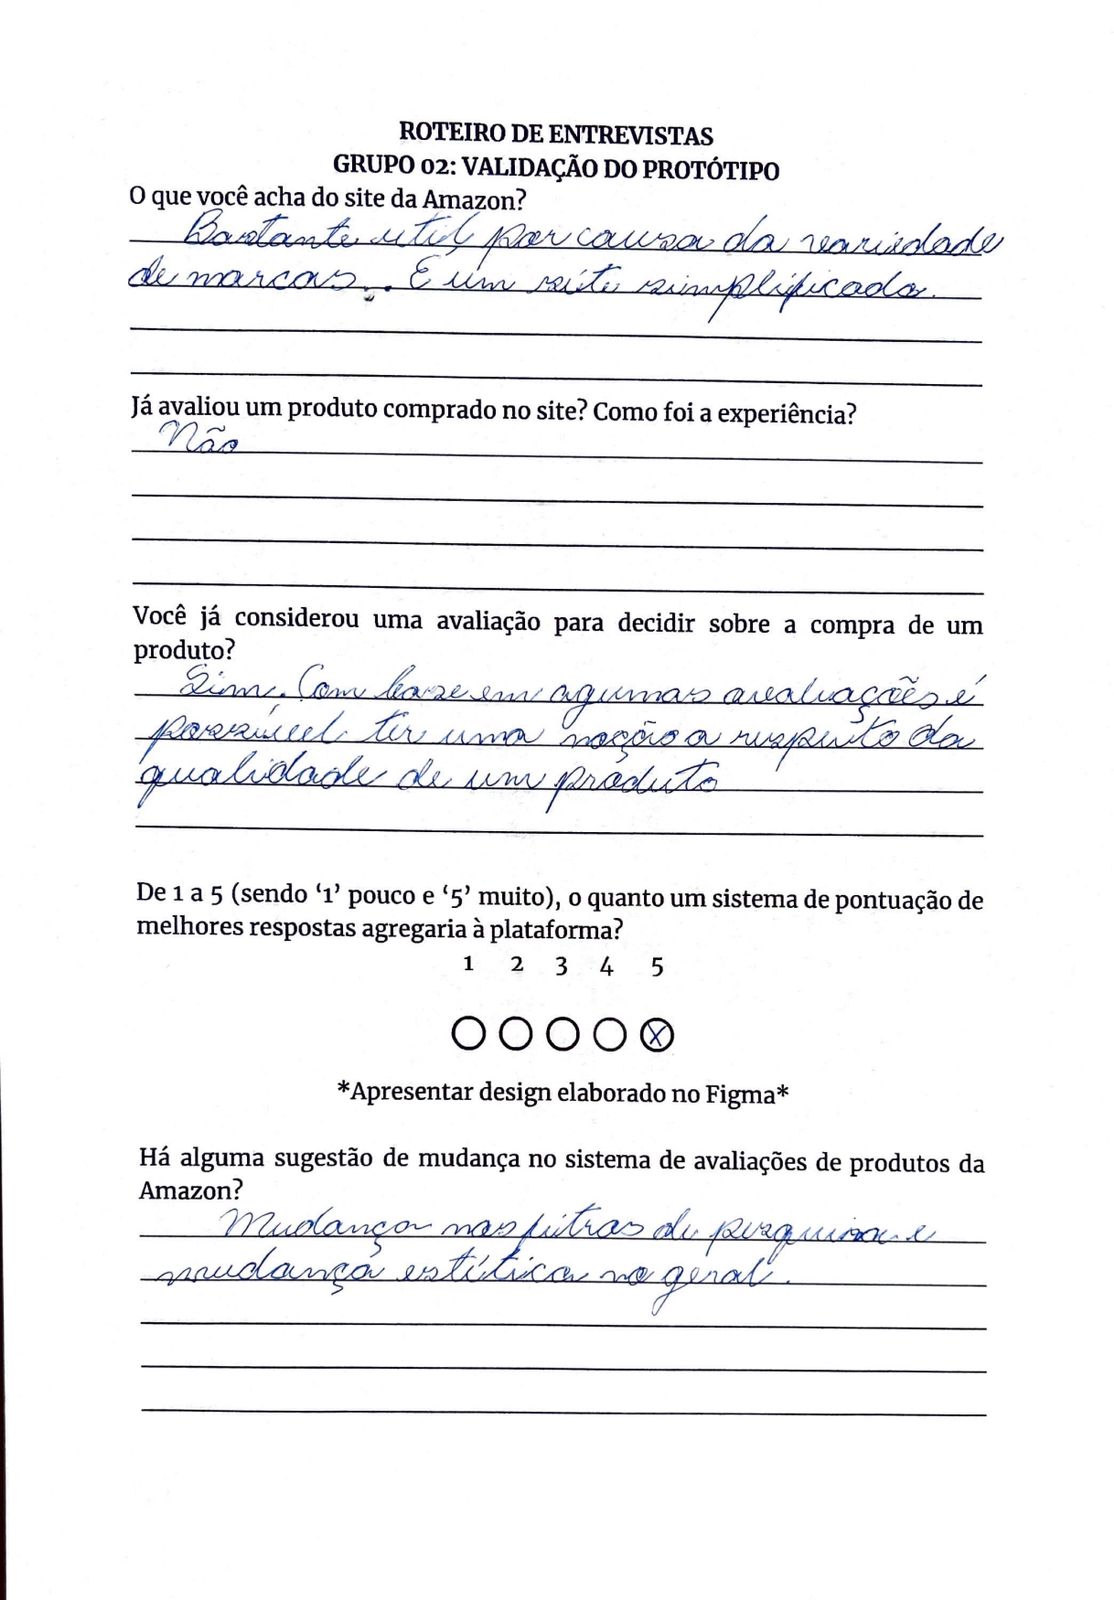 ROTEIRO DE ENTREVISTAS
GRUPO 02: VALIDAÇÃO DO PROTÓTIPO
O que você acha do site da Amazon?
Bastante útil por causa da variedade
de marcas. E um site simplificado.
Já avaliou um produto comprado no site? Como foi a experiência?
Não
Você já considerou uma avaliação para decidir sobre a compra de um
produto?
Sim. Com base em agumas avaliações é
possível ter uma noção a respeito da
qualidade de um produto
De 1 a 5 (sendo ‘1’ pouco e ‘5’ muito), o quanto um sistema de pontuação de
melhores respostas agregaria à plataforma?
1 2 3 4 5
X
*Apresentar design elaborado no Figma*
Há alguma sugestão de mudança no sistema de avaliações de produtos da
Amazon?
Mudança nas de pesquisa e
mudança estética no geral.